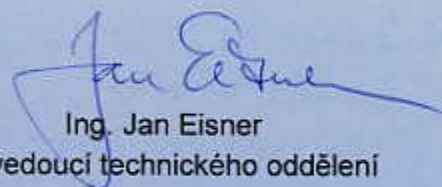 Jan Eisner
Ing. Jan Eisner
vedoucí technického oddělení